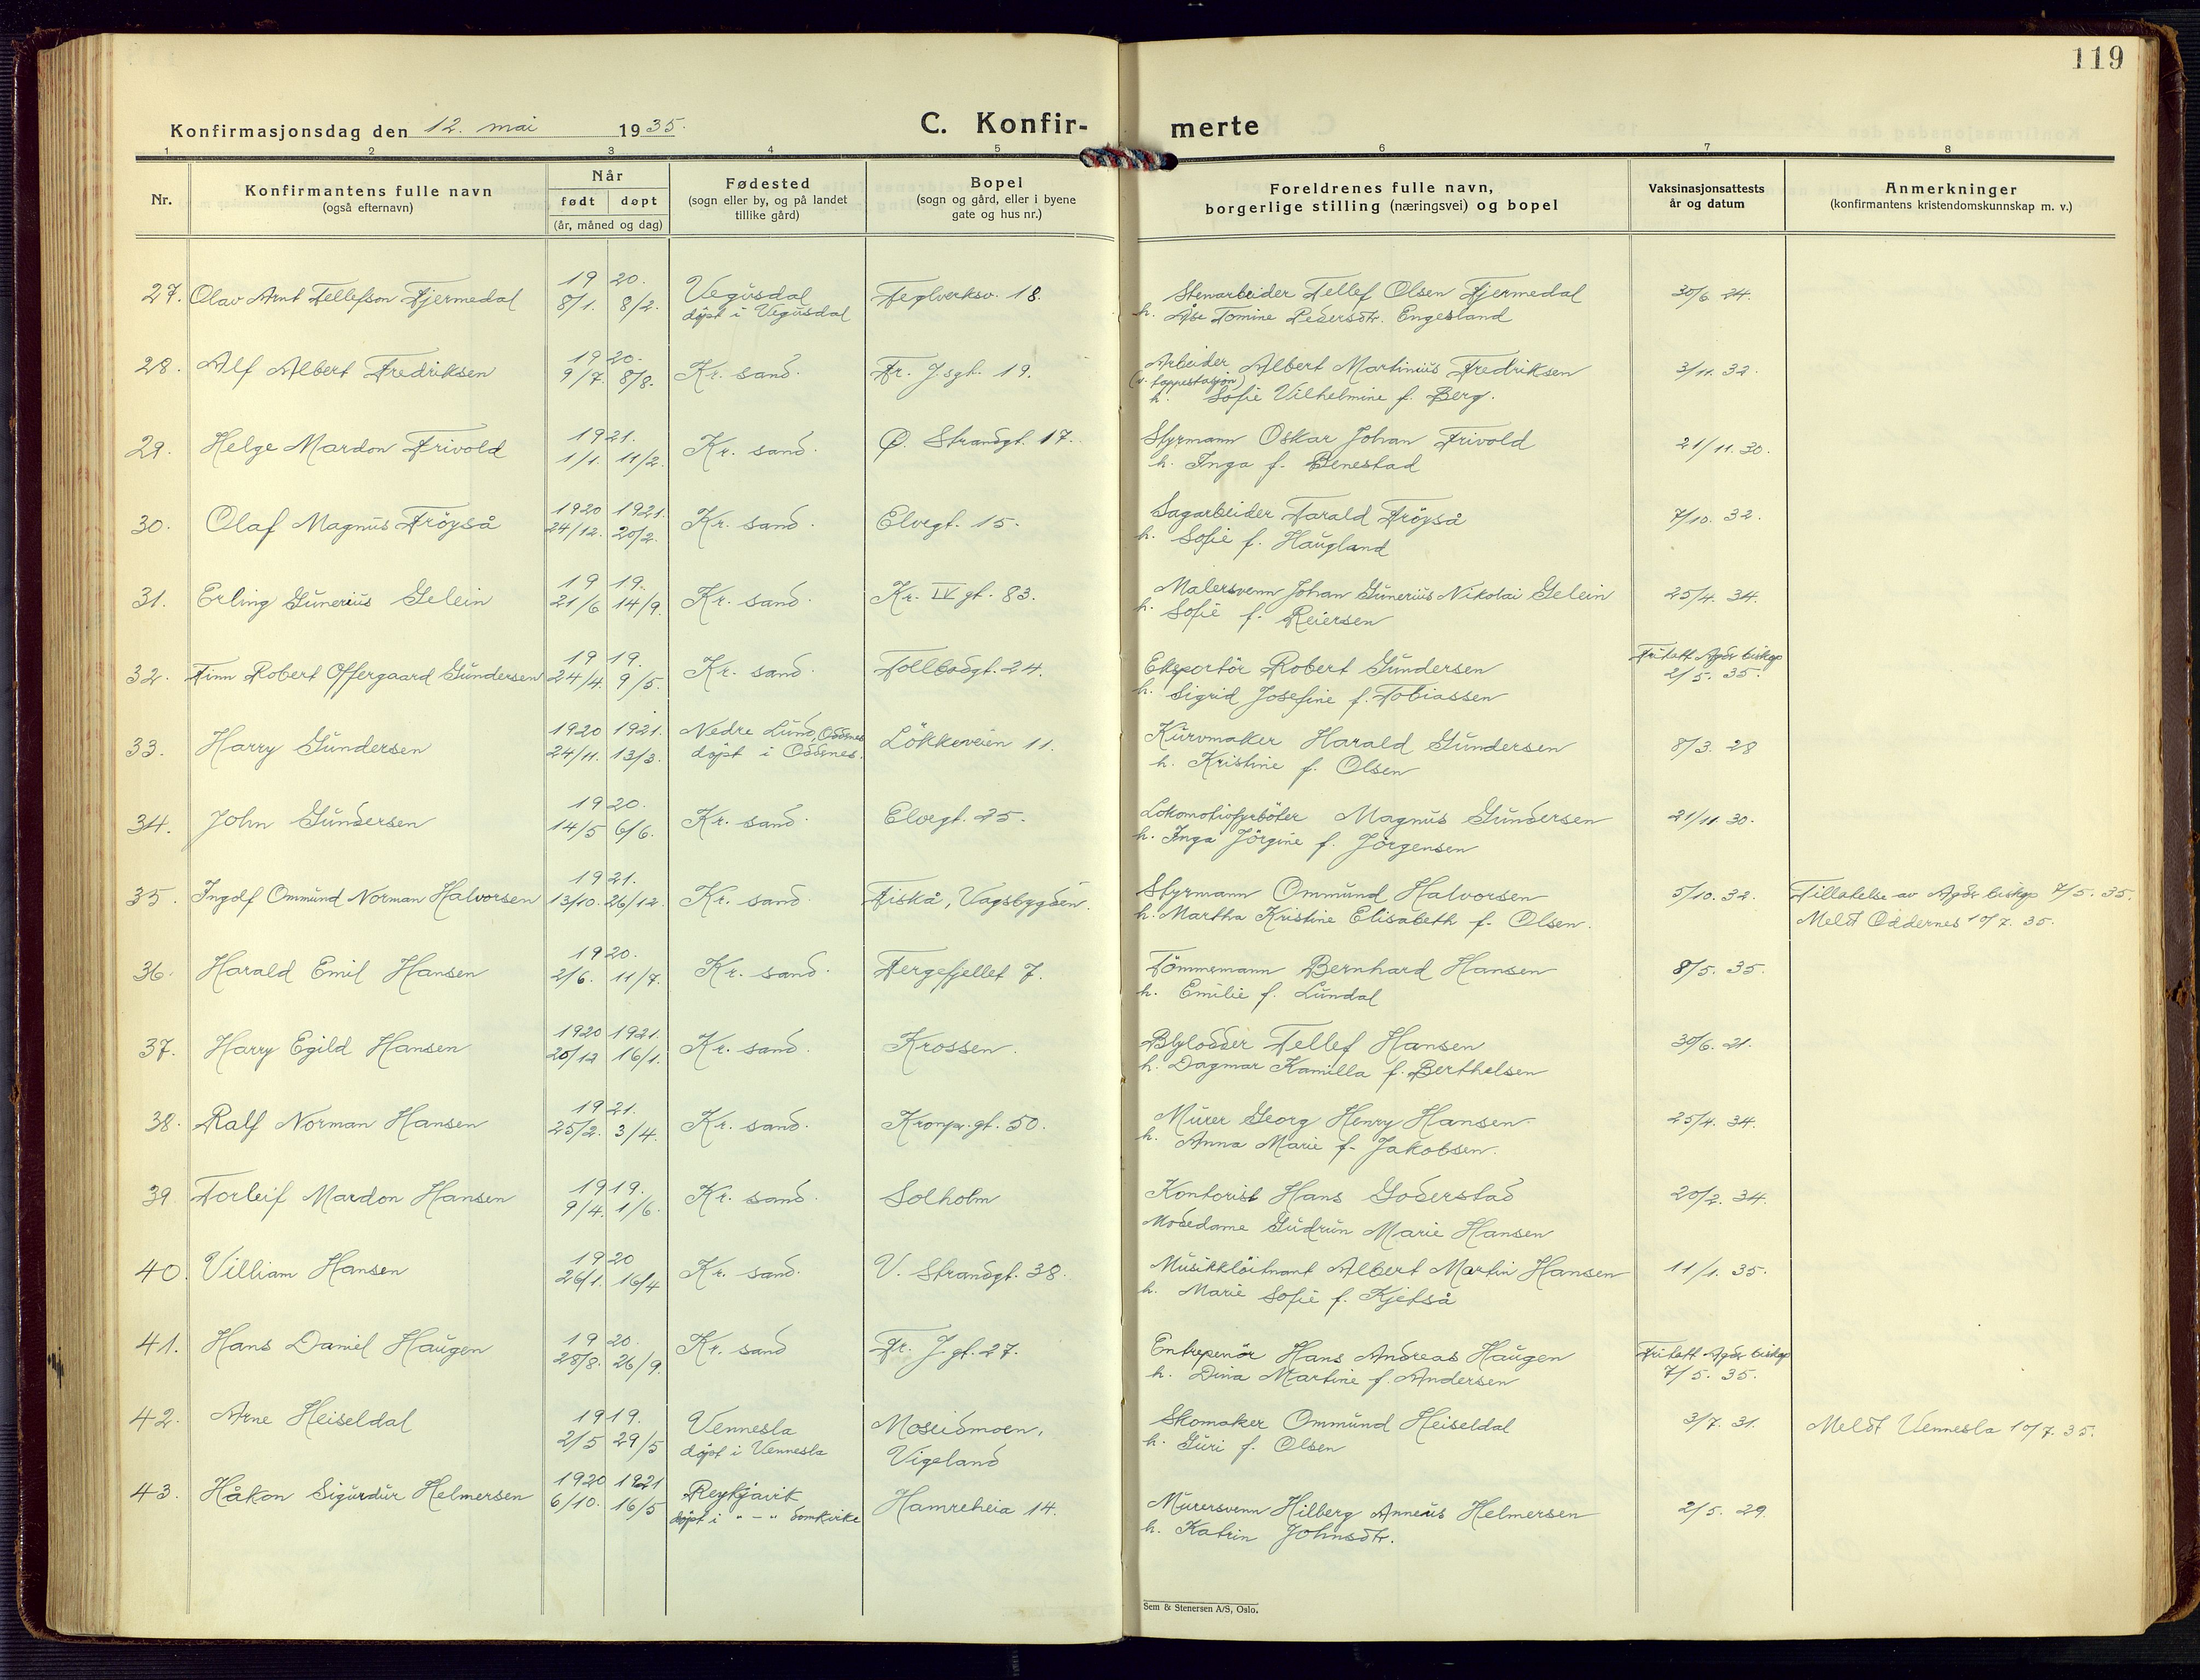 119
Konfirmasjonsdag den 12. mai 1935.
C. Konfir- merte
1 2 3 4 5 6 7 8
Nr.
Konfirmantens fulle navn
(også efternavn)
Når
født døpt
(år, måned og dag)
Fødested
(sogn eller by, og på landet
tillike gård)
Bopel
(sogn og gård, eller i byene
gate og hus nr.)
Foreldrenes fulle navn,
borgerlige stilling (næringsvei) og bopel
Vaksinasjonsattests
år og datum
Anmerkninger
(konfirmantens kristendomskunnskap m. v.)
27. Olav Arnt Tellefson Fjermedal 1920. 8/1. 8/2. Vegusdal Teglverksv. 18. Stenarbeider Tellef Olsen Fjermedal 30/6. 24.
døpt i Vegusdal h. Åse Tomine Pedersdtr. Engesland
28. Alf Albert Fredriksen 1920. 9/7. 8/8. Kr. sand. Fr. J sgt. 19. Arbeider Albert Martinius Fredriksen 3/11. 32.
(v. tappestasjon)
h. Sofie Vilhelmine f. Berg.
29. Helge Mardon Frivold 1921. 1/1. 11/2. Kr. sand. Ø. Strandgt. 17. Styrmann Oskar Johan Frivold 21/11. 30.
h. Inga f. Benestad
30. Olaf Magnus Fröyså 1920 24/12. 1921. 20/2. Kr. sand. Elvegt. 15. Sagarbeider Tarald Fröyså 7/10. 32.
h. Sofie f. Haugland
31. Erling Gunerius Gelein 1919. 21/6 14/9. Kr. sand. Kr. IV gt. 83. Malersvenn Johan Gunerius Nikolai Gelein 25/4. 34.
h. Sofie f. Reiersen
32. Finn Robert Offergaard Gundersen 1919. 24/4. 9/5. Kr. sand. Tollbodgt. 24. Eksportör Robert Gundersen Fritatt Agdr biskop
h. Sigrid Josefine f. Tobiassen 2/5. 35.
33. Harry Gundersen 1920 24/11. 1921. 13/3. Nedre Lund, Oddnes Lökkeveien 11. Kurvmaker Harald Gundersen 8/3. 28
døpt i Oddnes. h. Kristine f. Olsen
34. John Gundersen 1920. 14/5 6/6. Kr. sand. Elvegt. 25. Lokomotivfyrböter Magnus Gundersen 21/11. 30.
h. Inga Jörgine f. Jörgensen
35. Ingolf Ommund Norman Halvorsen 1921. 13/10. 26/12. Kr. sand. Fiskå, Vågsbygden. Styrmann Ommund Halvorsen 5/10. 32. Tillatelse av Agdr biskop 7/5. 35.
h. Martha Kristine Elisabeth f. Olsen. Meldt Oddernes 10/7. 35.
36. Harald Emil Hansen 1920. 2/6. 11/7. Kr. sand. Fergefjellet 7. Tömmermann Bernhard Hansen 8/5. 35.
h. Emilie f. Lundal
37. Harry Egild Hansen 1920 20/12 1921. 16/1. Kr. sand. Krossen. Blylodder Tellef Hansen 30/6. 21.
h. Dagmar Kamilla f. Berthelsen
38. Ralf Norman Hansen 1921. 25/2. 3/4. Kr. sand. Kronpr. gt. 50. Murer Georg Henry Hansen 25/4. 34.
h. Anna Marie f. Jakobsen.
39. Torleif Mardon Hansen 1919. 9/4. 1/6. Kr. sand. Solholm Kontorist Hans Goderstad 20/2. 34.
Motedame Gudrun Marie Hansen
40. Villiam Hansen 1920 26/1. 16/4 Kr. sand. V. Strandgt. 38. Musikklöitnant Albert Martin Hansen 11/1. 35.
h. Marie Sofie f. Kjetså
41. Hans Daniel Haugen 1920. 28/8. 26/9. Kr. sand Fr. J. gt. 27. Entrepenör Hans Andreas Haugen Fritatt Agdr biskop
h. Dina Martine f. Andersen 7/5. 35.
42. Arne Heiseldal 1919. 2/5 29/5 Vennesla Moseidmoen, Skomaker Ommund Heiseldal 3/7. 31. Meldt Vennesla 10/7. 35.
døpt i Vennesla Vigeland h. Guri f. Olsen
43. Håkon Sigurdur Helmersen 1920 6/10. 1921 16/5 Reykjavik Hamreheia 14. Murersvenn Hilberg Anneus Helmersen 2/5. 29.
døpt i " - " domkirke h. Katrin Johnsdtr.
Sem & Stenersen A/S, Oslo.